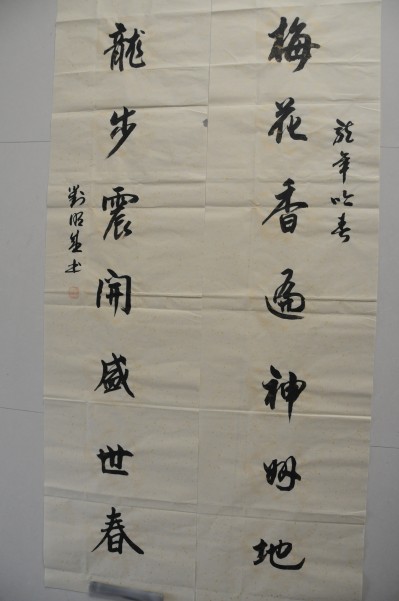 龍年吟春
梅花香遍神州地
龍步震開盛世春
劉昭書